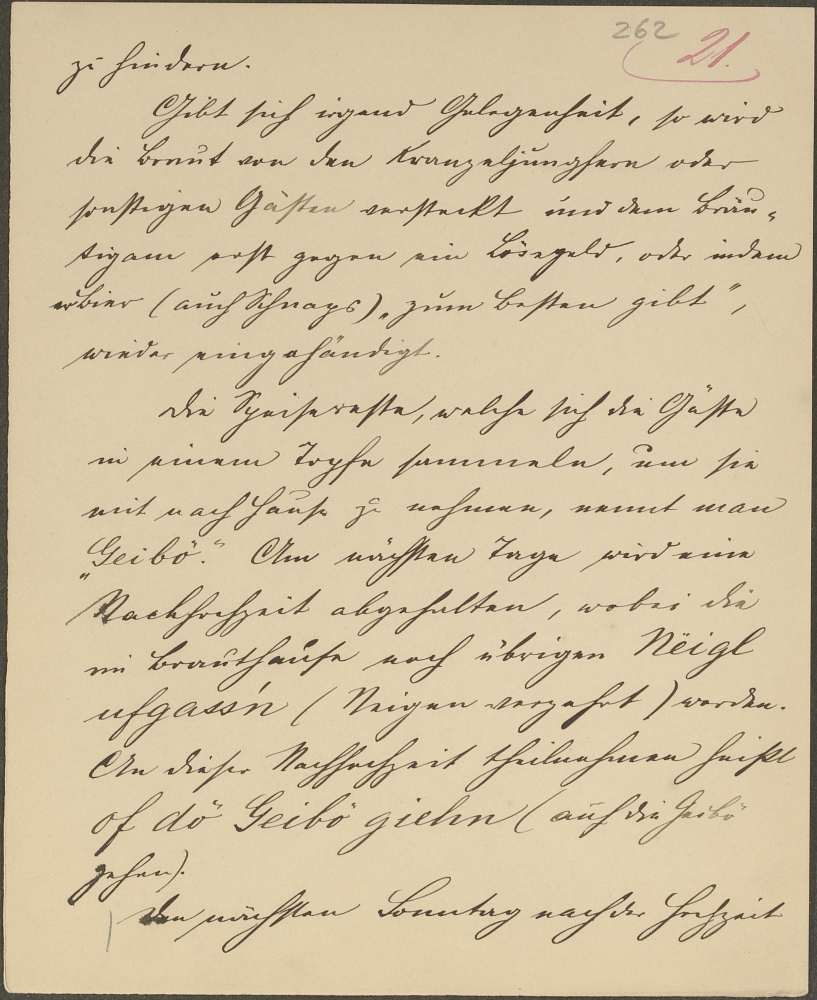 262 21.
zu hindern.
Gibt sich irgend Gelegenheit, so wird
die Braut von den Kranzeljungfern oder
sonstigen Gästen versteckt und dem Bräu-
tigam erst gegen ein Lösegeld, oder indem
er Bier (auch Schnaps) „zum Besten gibt“,
wieder eingehändigt.
Die Speisereste, welche sich die Gäste
in einem Topfe sammeln, um sie
mit nach Hause zu nehmen, nennt man
„Geibö.“ Am nächsten Tage wird eine
Nachhochzeit abgehalten, wobei die
im Brauthause noch übrigen Nëigl
ufgass'n (Neigen verzehrt) werden.
An dieser Nachhochzeit theilnehmen heißt
of dö Geibö giehn (auf die Geibö
gehen).
Den nächsten Sonntag nach der Hochzeit